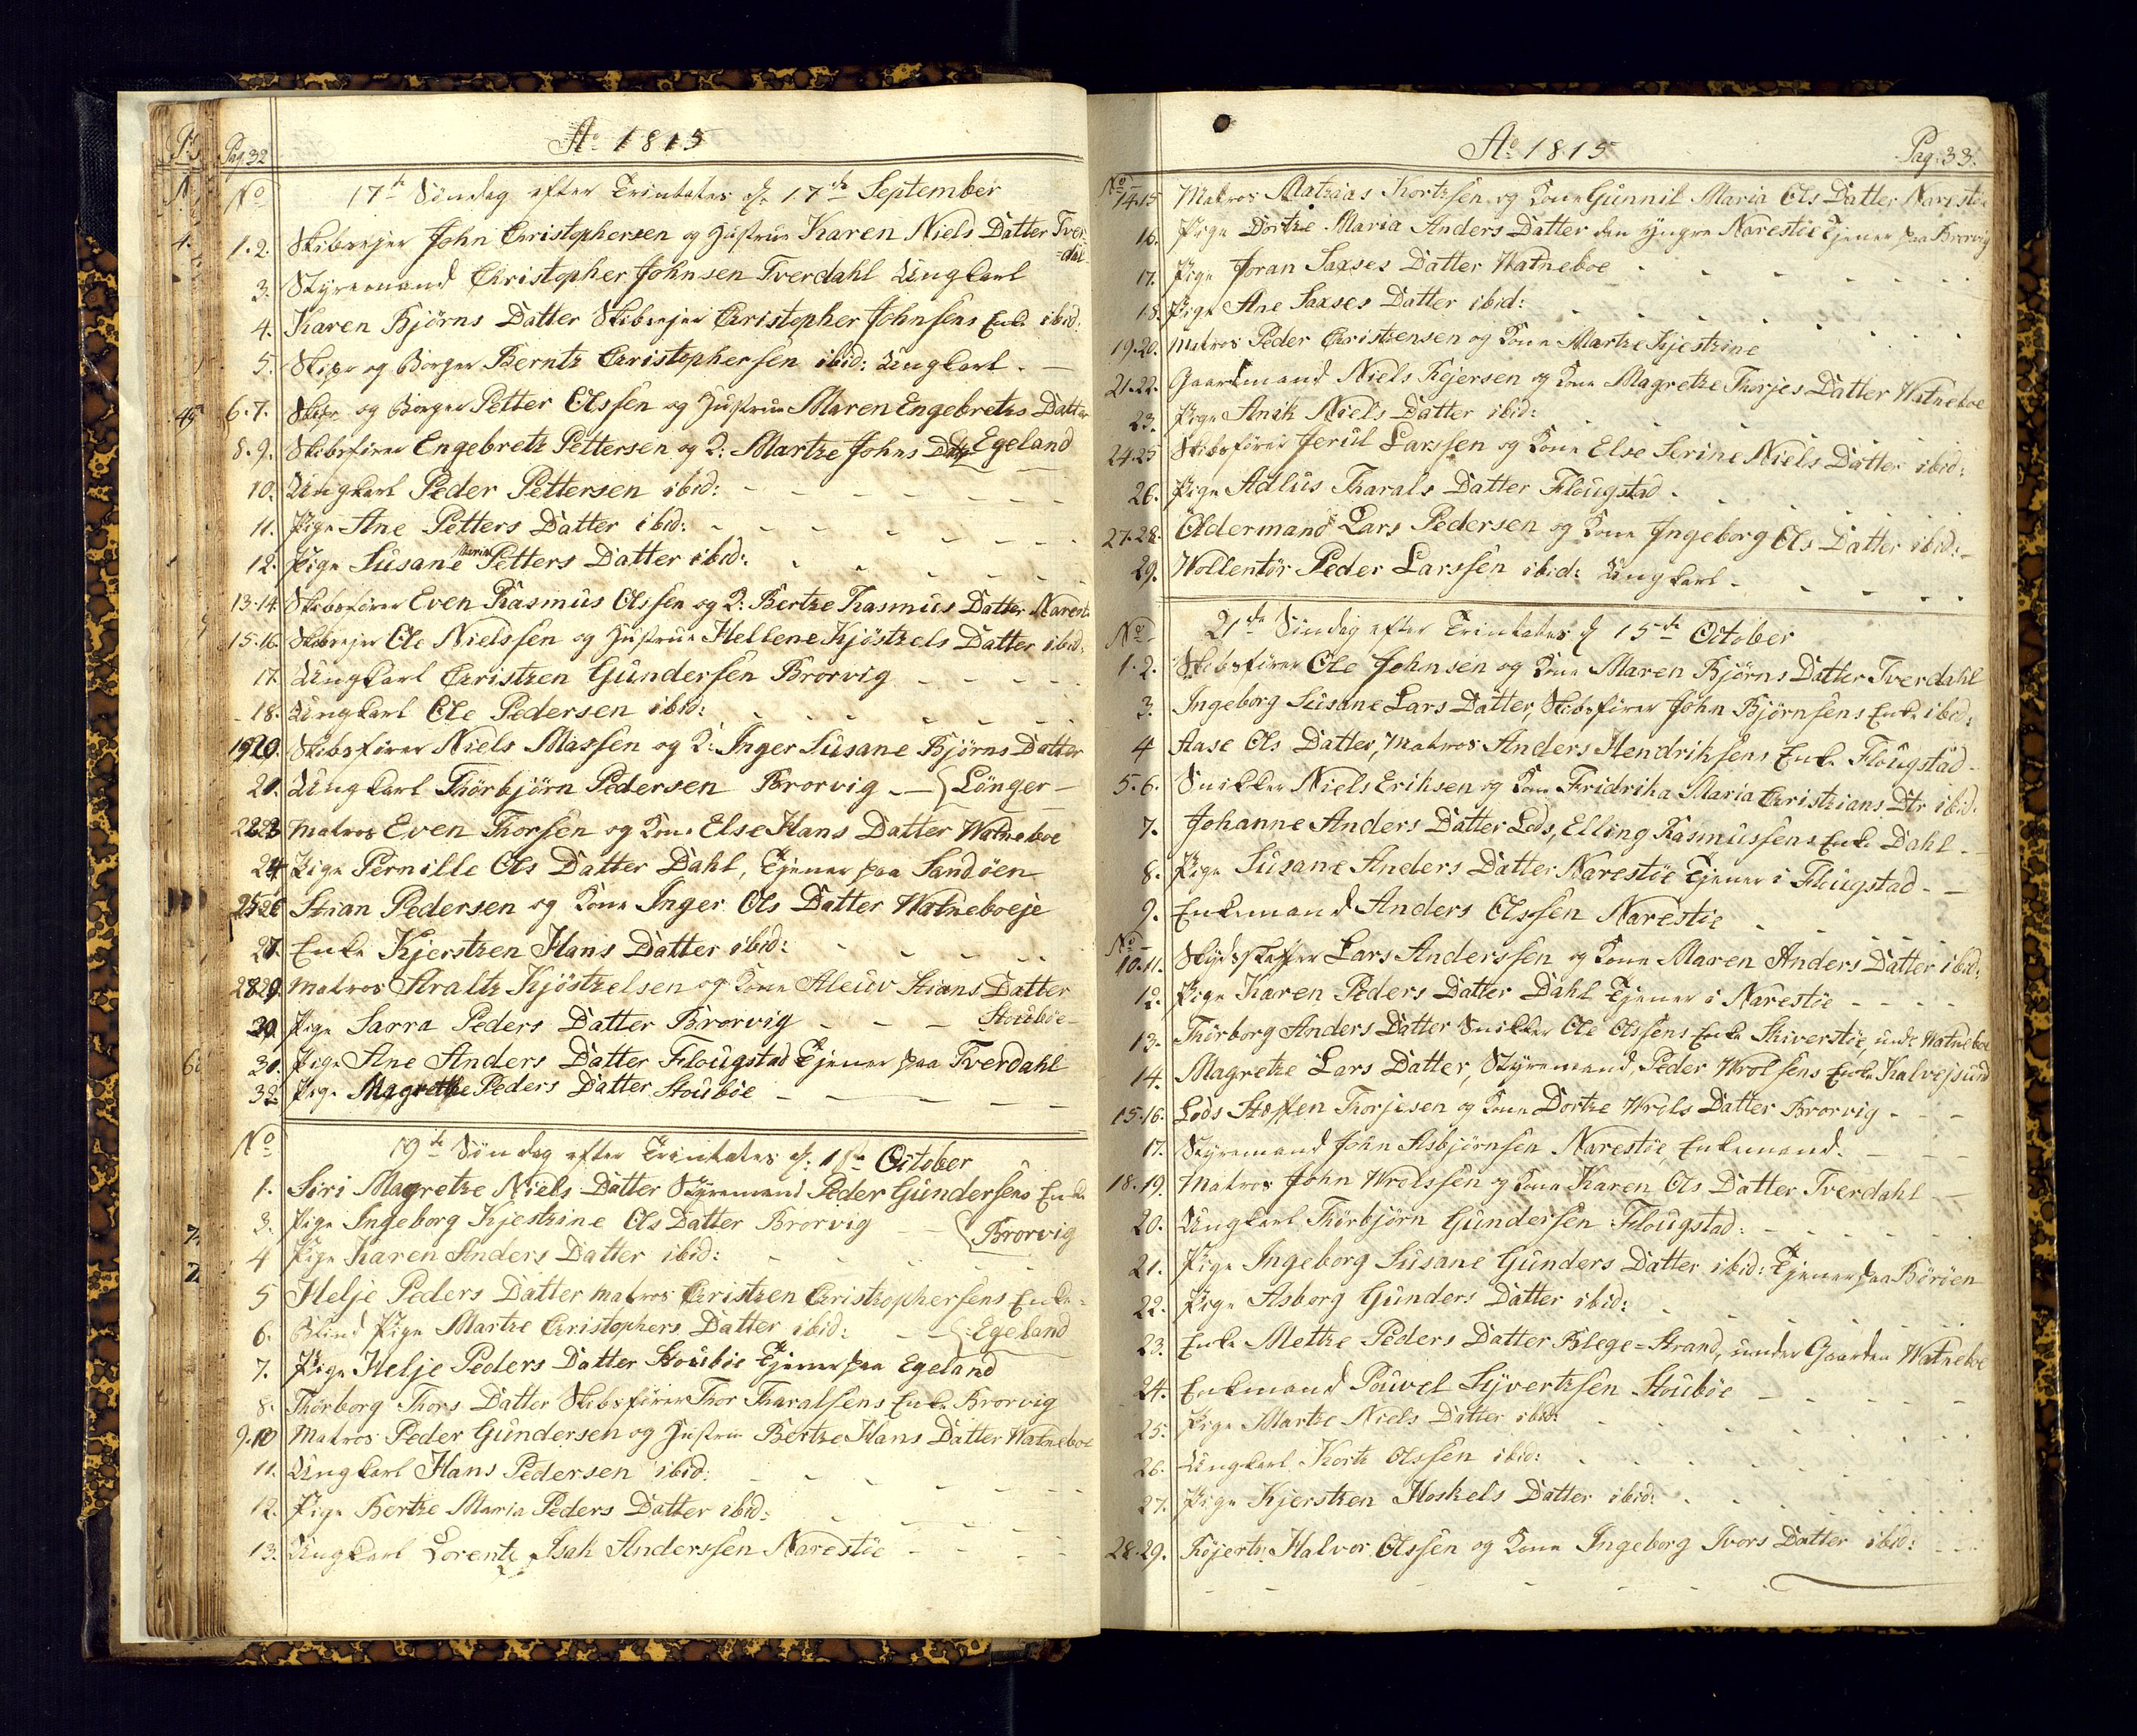 Pag. 32
Ao 1815
No
17de Söndag efter Trinitates d. 17de September
1.2. Skibsejer John Christophersen og Hustrue Karen Niels Datter Tver
-dal
3. Styremand Christopher Johnsen Tverdahl Ungkarl
4. Karen Björns Datter Skibsejer Christopher Johnsens Enke ibid:
5. Skipr og Borger Berntz Christophersen ibid: Ungkarl. —
6.7. Skipr og Borger Petter Olssen og Hustrue Maren Engebretzs Datter
8.9. Skibsförer Engebretz Pettersen og K: Martze Johns Datr Egeland
10. Ungkarl Peder Pettersen ibid:
11. Pige Ane Petters Datter ibid:
12. Pige Susane Maria Petters Datter ibid:
13.14. Skibsförer Even Rasmus Olssen og K: Bertze Rasmus Datter Narestö
15.16. Skibsejer Ole Nielssen og Hustrue Hellene Kjöstzels Datter ibid:
17. Ungkarl Christzen Gundersen Brorvig
18. Ungkarl Ole Pedersen ibid:
19.20. Skibsförer Niels Massen og K: Inger Susane Björns Datter
21. Ungkarl Thörbjörn Pedersen Brorvig — { Lönger —
22.23 Matros Even Thorssen og Kone Else Hans Datter Watneboe
24 Pige Pernille Ols Datter Dahl, Tjener paa Sandöen
25.26 Stian Pedersen og Kone Inger Ols Datter Watneboeje
27. Enke Kjerstzen Hans Datter ibid:
28.29. Matros Straltz Kjöstzelsen og Kone Aleuv Stians Datter
30. Pige Sarra Peders Datter Brorvig — Stouböe —
31. Pige Ane Anders Datter Flougstad Tjener paa Tverdahl
32. Pige Magretze Peders Datter Stouböe
No
19de Söndag efter Trinitates d. 1ste October
1. Siri Magretze Niels Datter Styremand Peder Gundersens Enke
3. Pige Ingeborg Kjestzine Ols Datter Brorvig — { Brorvig
4 Pige Karen Anders Datter ibid:
5 Helje Peders Datter Matros Christzen Christzophersens Enke
6. Blind Pige Martze Christophers Datter ibid: — { Egeland
7. Pige Helje Peders Datter Stouböe Tjener paa Egeland
8. Thörborg Thors Datter Skibsförer Thor Tharalsens Enke Brorvig
9.10 Matros Peder Gundersen og Hustrue Bertze Hans Datter Watneboe
11. Ungkarl Hans Pedersen ibid:
12. Pige Bertze Maria Peders Datter ibid:
13. Ungkarl Lorentz Isak Anderssen Narestöe
Ao 1815
Pag: 33.
No
14.15 Matros Matzias Kortzsen og Kone Gunnil Maria Ols Datter Narestöe
16. Pige Dortze Maria Anders Datter den yngre Narestöe Tjener paa Brorvig
17. Pige Joran Saxses Datter Watneboe
18. Pige Ane Saxses Datter ibid:
19.20. Matros Peder Christzensen og Kone Martze Kjestzine
21.22. Gaardmand Niels Rejersen og Kone Magretze Thorjes Datter Watneboe
23. Pige Anik Niels Datter ibid:
24.25 Skibsförer Jerul Larssen og Kone Else Serine Niels Datter ibid:
26. Pige Adlus Tharals Datter Flougstad.
27.28. Oldermand Lars Pedersen og Kone Ingeborg Ols Datter ibid:
29. Wollentör Peder Larssen ibid: Ungkarl
No
21de Söndag efter Trinitates d 15de October
1.2. Skibsförer Ole Johnsen og Kone Maren Björns Datter Tverdahl
3. Ingeborg Susane Lars Datter, Skibsförer John Björnsens Enke ibid:
4 Aase Ols Datter, Matros Anders Hendriksens Enke Flougstad
5.6. Snikker Niels Eriksen og Kone Fridrika Maria Christzians Dtr ibid:
7. Johanne Anders Datter Lods, Elling Rasmussens Enke Dahl
8. Pige Susane Anders Datter Narestöe Tjener i Flougstad
9. Enkemand Anders Olssen Narestöe
No
10.11. Skydsskaffer Lars Anderssen og Kone Maren Anders Datter ibid:
12. Pige Karen Peders Datter Dahl Tjener i Narestöe
13. Thörborg Anders Datter Snikker Ole Olssens Enke Skiverstöe, unde Watneboe
14. Magretze Lars Datter, Styremand, Peder Wrolsens Enke Kalvesund
15.16. Lods Steffen Thorjesen og Kone Dortze Wrols Datter Brorvig
17. Styremand John Asbjörnsen Narestöe, Enkemand.
18.19. Matros John Wrolssen og Kone Karen Ols Datter Tverdahl
20. Ungkarl Thörbjörn Gundersen Flougstad:
21. Pige Ingeborg Susane Gunders Datter ibid: Tjener paa Böröen
22. Pige Asborg Gunders Datter ibid:
23. Enke Mettze Peders Datter Blege=Strand, under Gaarden Watneboe
24. Enkemand Pouvel Syvertzsen Stouböe
25. Pige Martze Niels Datter ibid:
26. Ungkarl Kortz Olssen ibid:
27. Pige Kjerstzen Hoskels Datter ibid:
28.29. Röjertz Halvor Olssen og Kone Ingeborg Ivors Datter ibid: